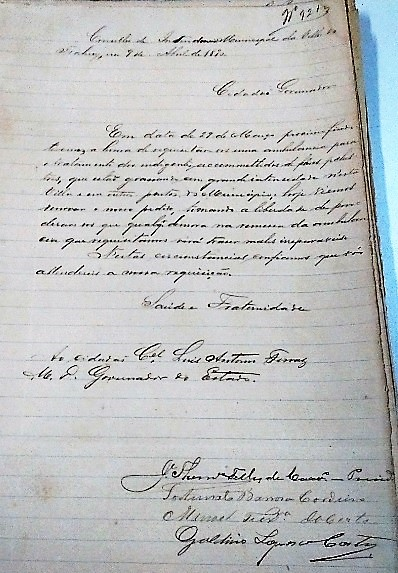 Nº 921
Conselho de Intendencia Municipal da Villa do
9 de Abril de 189
Cidadão Governador
Em data de 29 de Março proximo findo
tivemos a honra de requisitar-vos uma ambulancia para
o tratamento dos indigentes accommettidos de febres palus-
tres, que estão grassando em grande intensidade nesta
Villa e em outros pontos do Municipio; hoje viemos
renovar o nosso pedido, tomando a liberdade de pon-
derar-vos que qualquer demora na remessa da ambulan-
cia que requisitamos virá trazer males irreparaveis.
Nestas circumstancias confiamos que vós
attendereis a nossa requisição.
Saúde e Fraternidade
Ao cidadão Cel Luis Antonio Ferraz
M. D. Governador do Estado.
Telles de
Fortunato Barroso Cordeiro
Manoel
Galdino